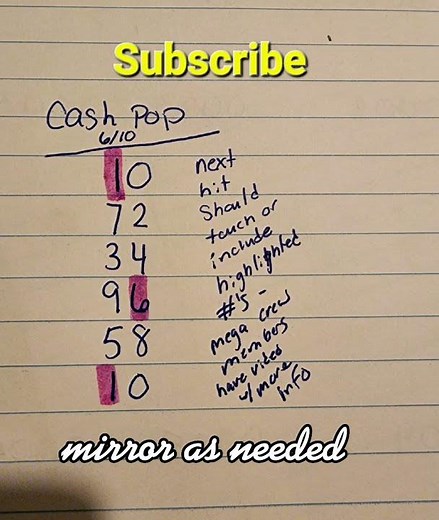 Subscribe
Cash Pop
6/10
10
72
34
96
58
10
next
hit
Should
touch or
include
highlighted
#'s -
mega crew
members
have video
w/ more
info
mirror as needed